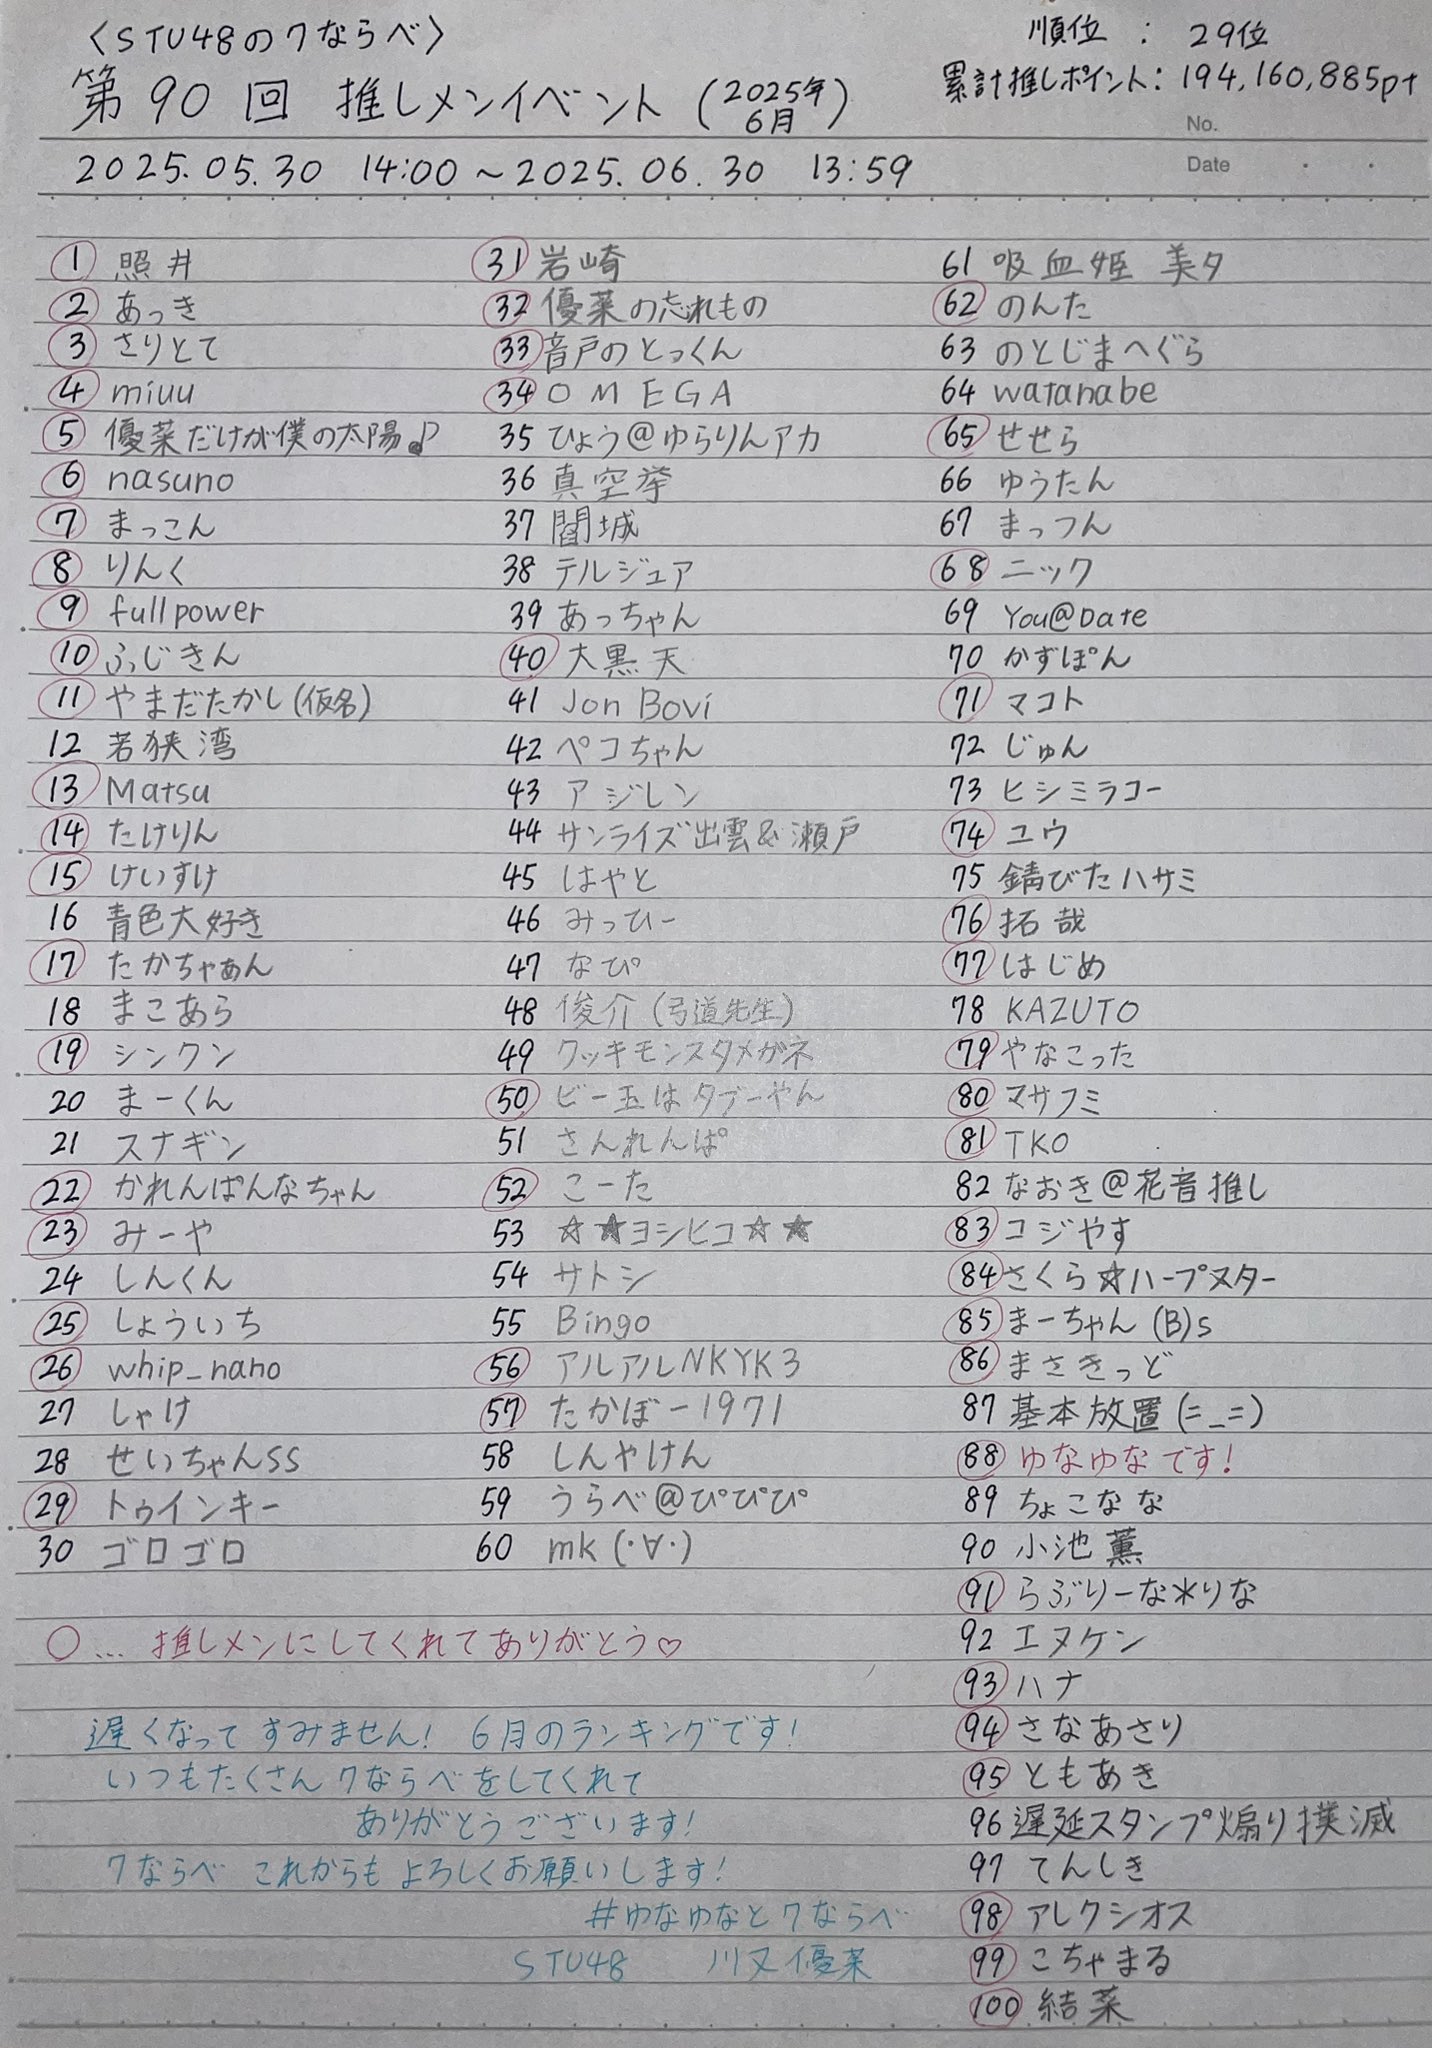 〈STU48の7ならべ〉
順位 : 29位
第90回 推しメンイベント (2025年6月)
累計推しポイント: 194,160,885pt
No.
2025.05.30 14:00～2025.06.30 13:59
Date
1 照井
2 あっき
3 さりとて
4 miuu
5 優菜だけが僕の太陽♪
6 nasuno
7 まっこん
8 りんく
9 fullpower
10 ふじきん
11 やまだたかし(仮名)
12 若狭湾
13 Matsu
14 たけりん
15 けいすけ
16 青色大好き
17 たかちゃぁん
18 まこあら
19 シンクン
20 まーくん
21 スナギン
22 かれんぱんなちゃん
23 みーや
24 しんくん
25 しょういち
26 whip_nano
27 しゃけ
28 せいちゃんSS
29 トゥインキー
30 ゴロゴロ
31 岩崎
32 優菜の忘れもの
33 音戸のとっくん
34 OMEGA
35 ひょう@ゆらりんアカ
36 真空挙
37 閻城
38 テルジュア
39 あっちゃん
40 大黒天
41 Jon Bovi
42 ペコちゃん
43 アジレン
44 サンライズ出雲&瀬戸
45 はやと
46 みっひー
47 なぴ
48 俊介(弓道先生)
49 クッキモンスタメガネ
50 ビー玉はタブーやん
51 さんれんぱ
52 こーた
53 ☆★ヨシヒコ☆★
54 サトシ
55 Bingo
56 アルアルNKYK3
57 たかぼー1971
58 しんやけん
59 うらべ@ぴぴぴ
60 mk(･∀･)
61 吸血姫 美夕
62 のんた
63 のとじまへぐら
64 watanabe
65 せせら
66 ゆうたん
67 まっつん
68 ニック
69 You@Date
70 かずぽん
71 マコト
72 じゅん
73 ヒシミラコー
74 ユウ
75 錆びたハサミ
76 拓哉
77 はじめ
78 KAZUTO
79 やなこった
80 マサフミ
81 TKO
82 なおき@花音推し
83 コジやす
84 さくら☆ハープスター
85 まーちゃん(B)s
86 まさきっど
87 基本放置(=_=)
88 ゆなゆなです!
89 ちょこなな
90 小池薫
91 らぶりーな*りな
92 エヌケン
93 ハナ
94 さなあさり
95 ともあき
96 遅延スタンプ煽り撲滅
97 てんしき
98 アレクシオス
99 こちゃまる
100 結菜
○…推しメンにしてくれてありがとう♡
遅くなってすみません! 6月のランキングです!
いつもたくさん7ならべをしてくれて
ありがとうございます!
7ならべ これからもよろしくお願いします!
#ゆなゆなと7ならべ
STU48 川又優菜